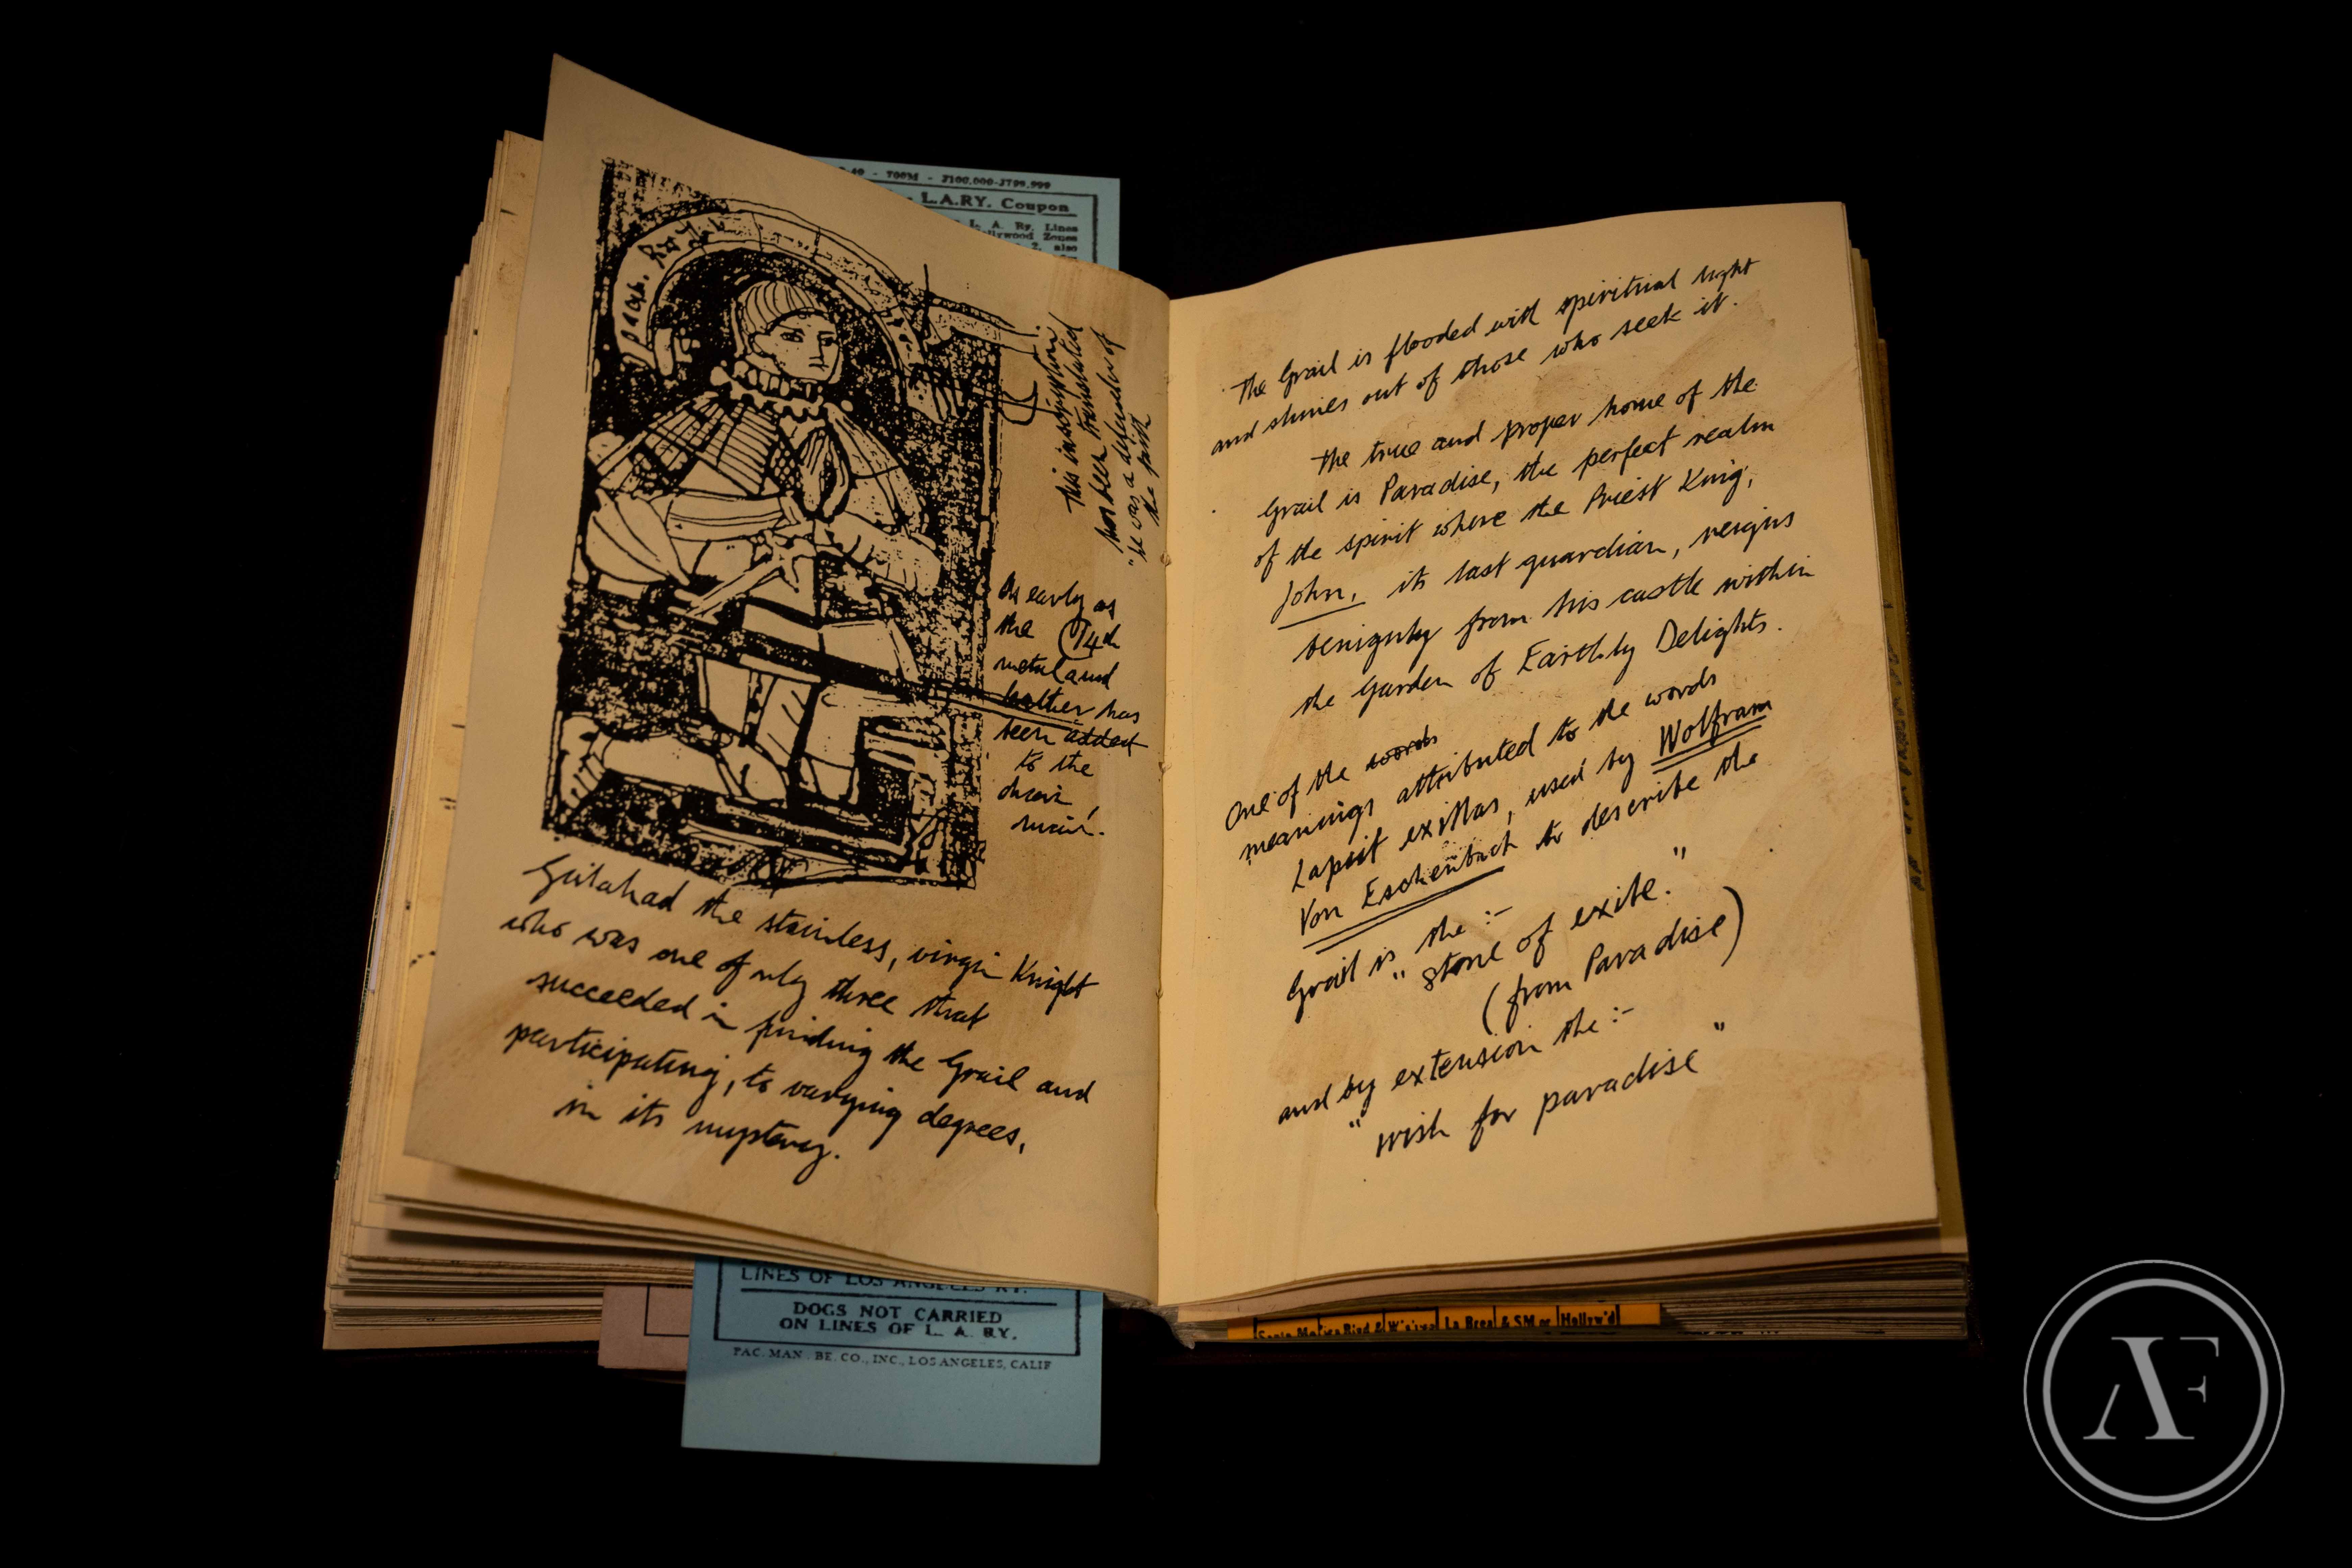 700M - J100,000-J799,999
L.A.RY. Coupon
L. A. Ry. Lines
Hollywood Zones
2, also
This inscription
has been translated
"he was a defender of
the faith
As early as
the (14th
metal and
leather has
been added
to the
chain
mail.
Galahad the stainless, virgin Knight
who was one of only three that
succeeded in finding the Grail and
participating, to varying degrees,
in its mystery.
The Grail is flooded with spiritual light
and shines out of those who seek it.
The true and proper home of the
Grail is Paradise, the perfect realm
of the spirit where the Priest King,
John, its last guardian, reigns
benignly from his castle within
the Garden of Earthly Delights.
One of the words
meanings attributed to the words
Lapsit exillas, used by Wolfram
Von Eschenbach to describe the
Grail is the :-
"stone of exile."
(from Paradise)
and by extension the :-
"wish for paradise"
LINES OF LOS ANGELES RY.
DOGS NOT CARRIED
ON LINES OF L. A. RY.
PAC. MAN. BE. CO., INC., LOS ANGELES, CALIF
La Brea & SM or Hollyw'd
AF